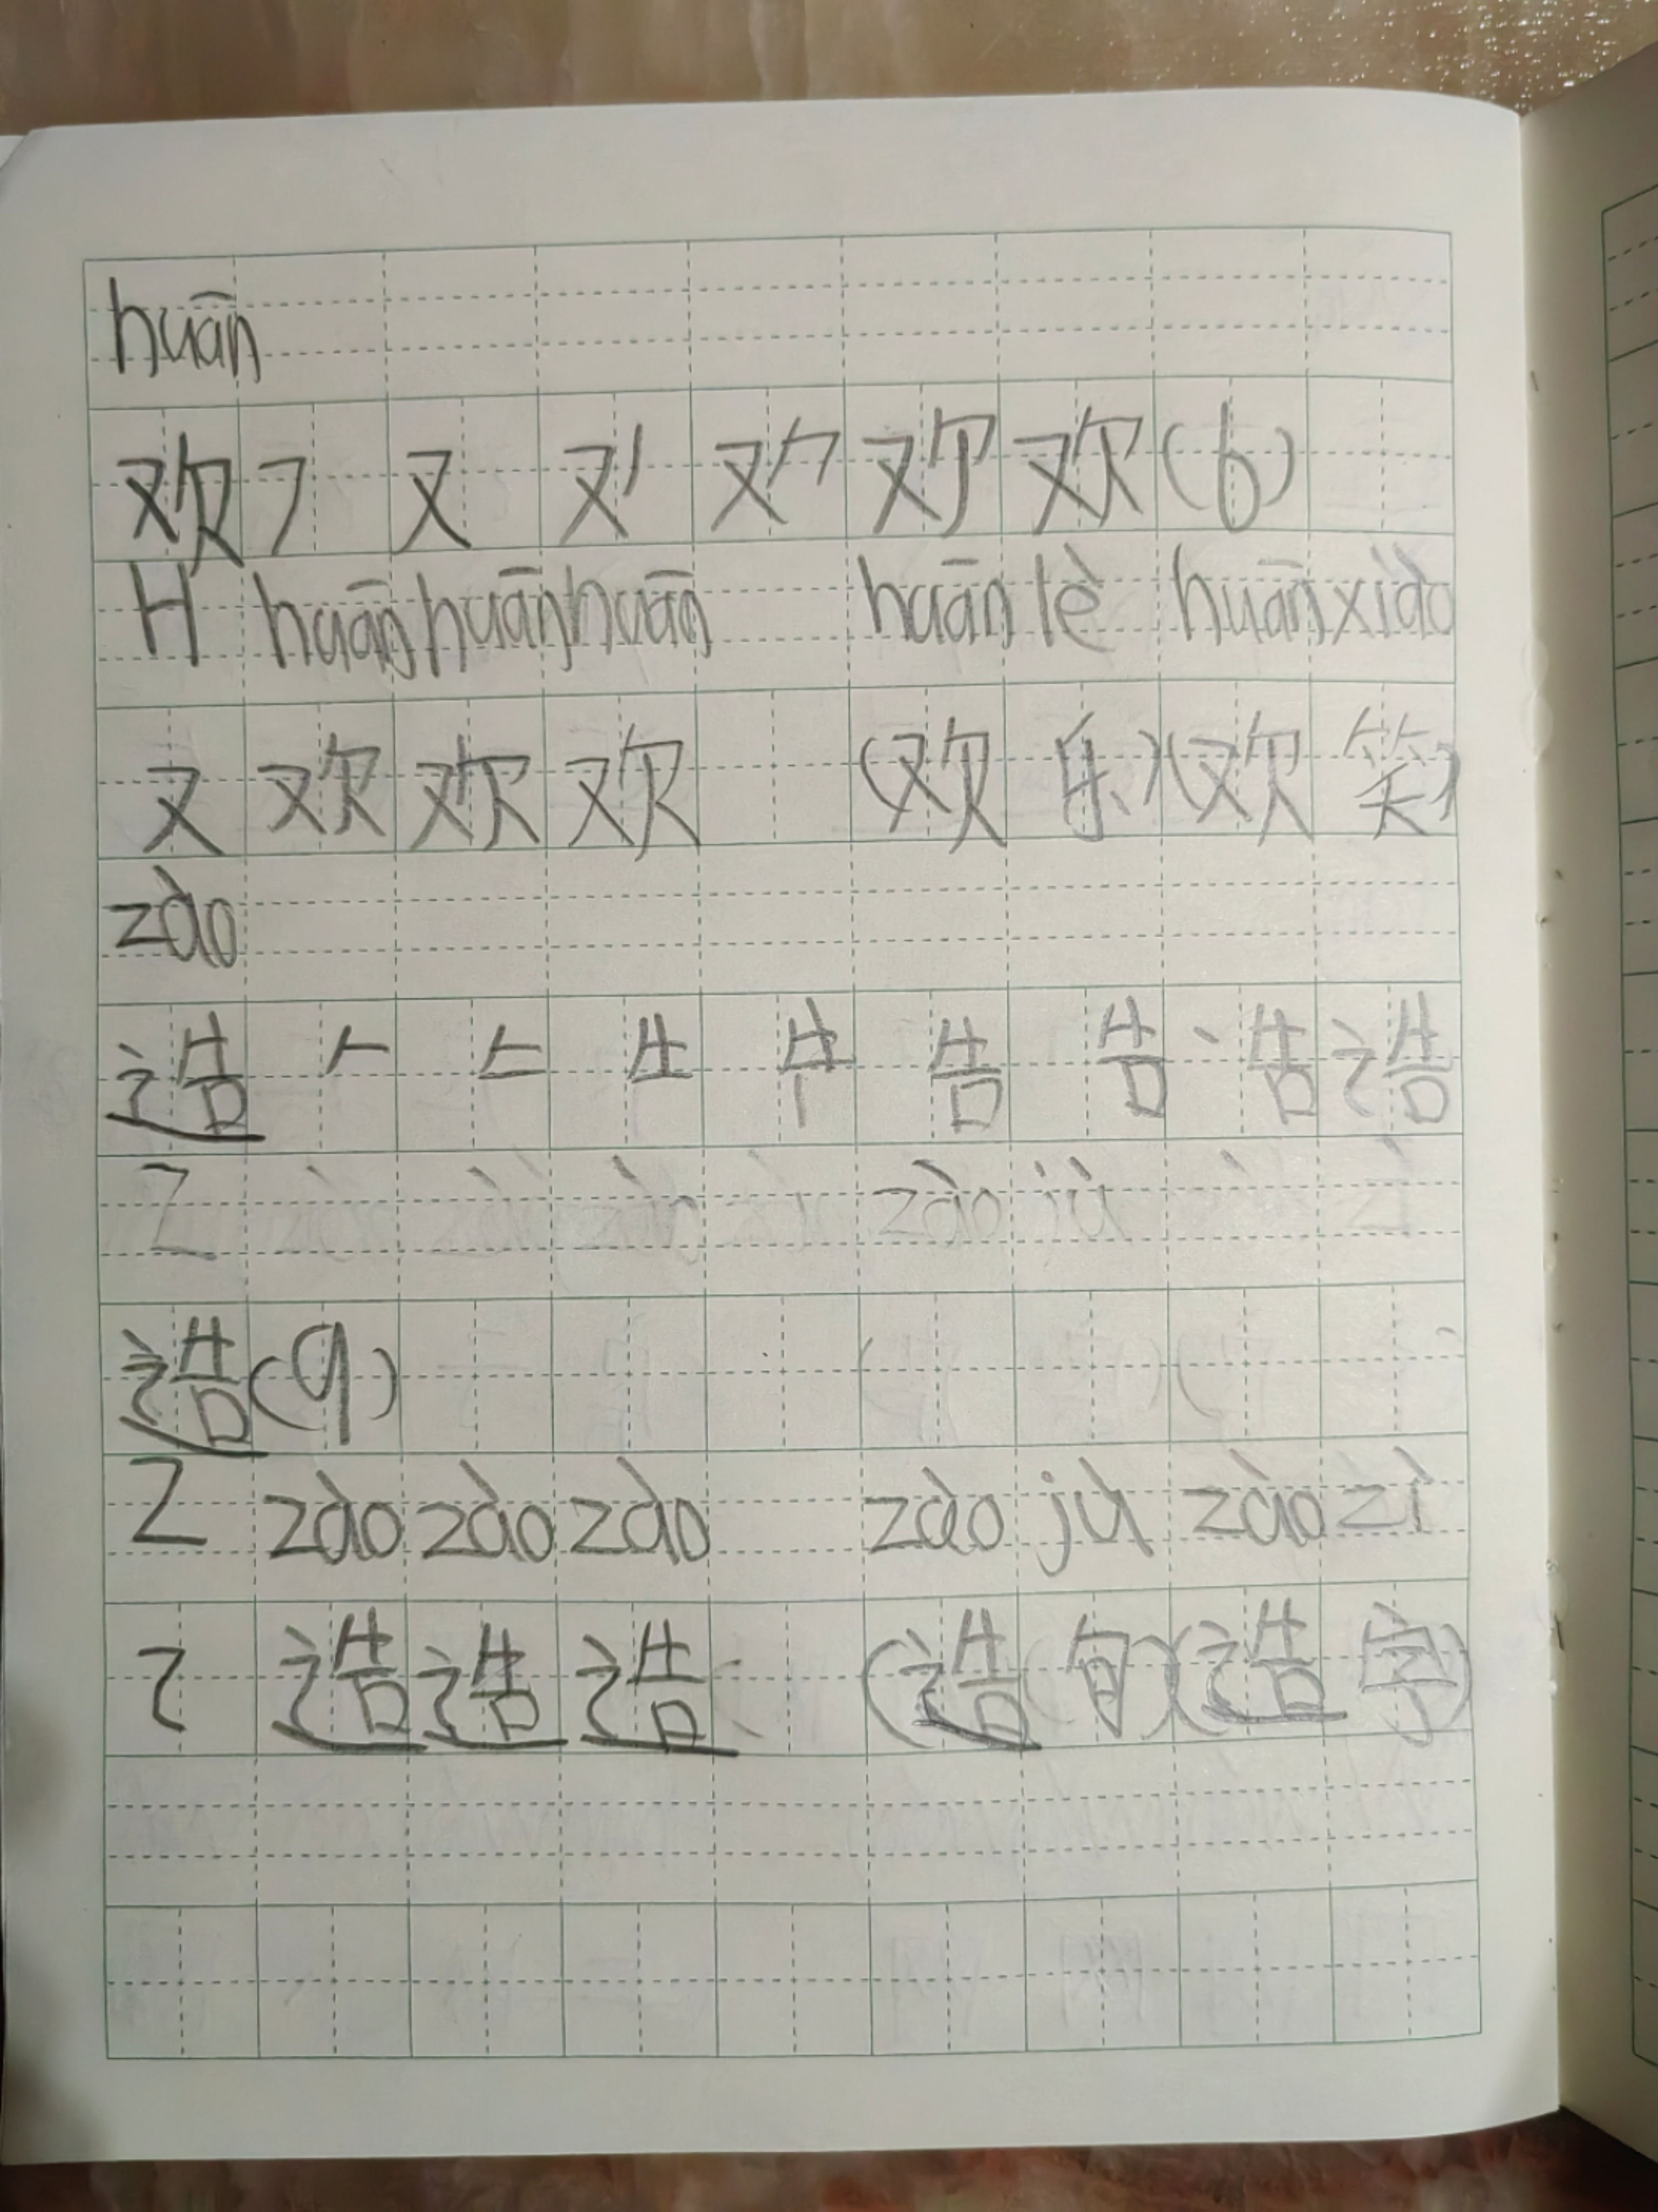 huān
欢 ㇇ 又 又丿 又𠂊 欢 欢 (6)
H huān huān huān huān lè huān xiào
又 欢 欢 欢 (欢 乐) (欢 笑)
zào
造 𠂉 告 告
Z zào jù
造 (9)
Z zào zào zào zào jù zào zì
辶 造 造 造 (造 句) (造 字)